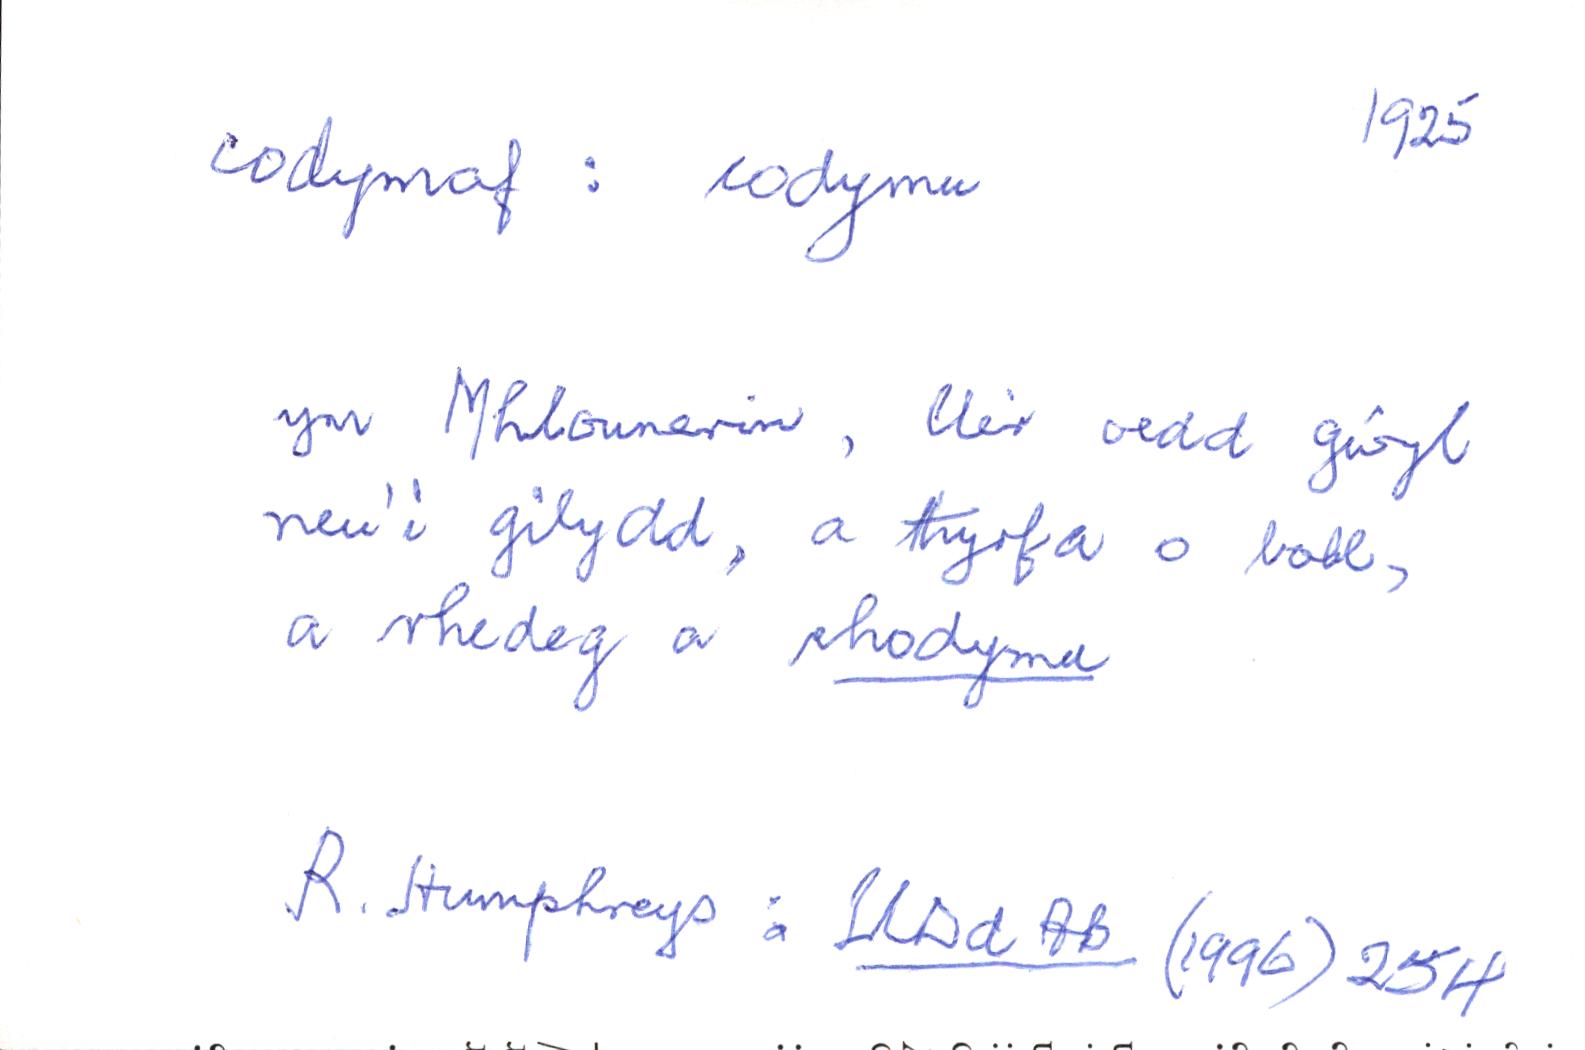 1925
codymaf : codymu
ym Mhlounerin, lle'r oedd gŵyl
neu'i gilydd, a thyrfa o bobl,
a rhedeg a chodymu
R. Humphreys : LlDd AB (1996) 254